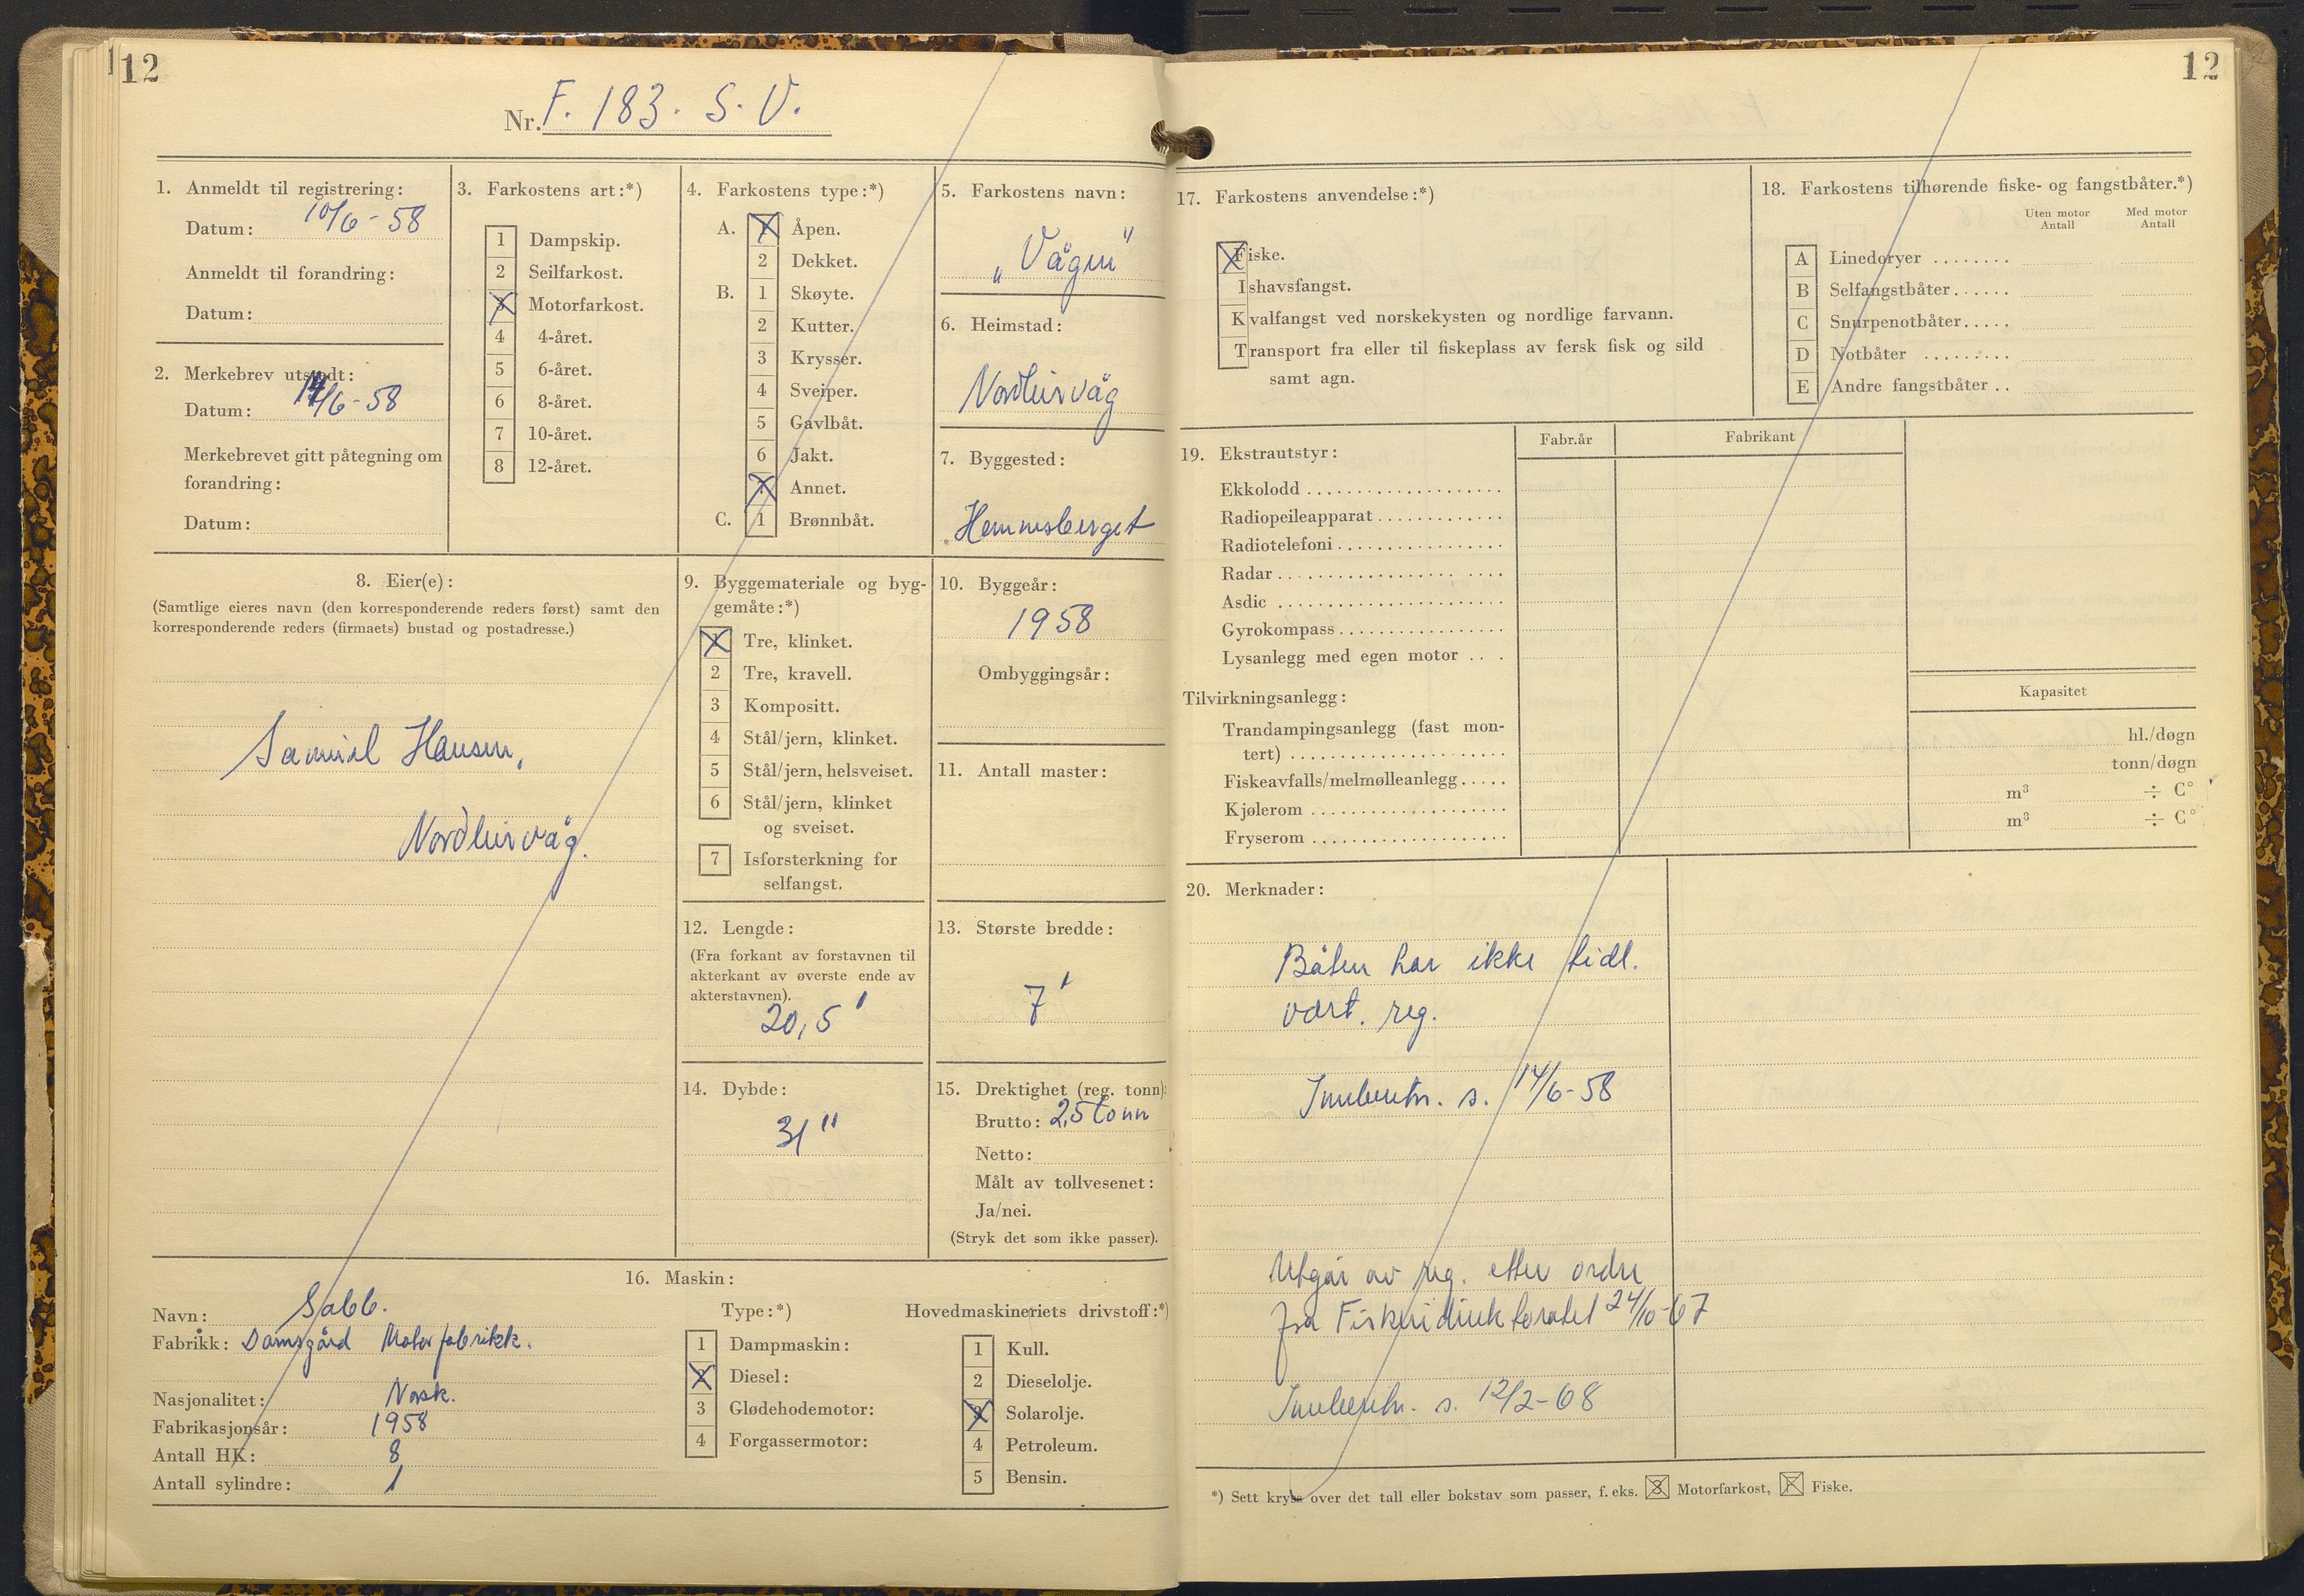 12
Nr. F. 183. S. V.
1. Anmeldt til registrering:
Datum: 10/6 - 58
Anmeldt til forandring:
Datum:
2. Merkebrev utstedt:
Datum: 14/6 - 58
Merkebrevet gitt påtegning om
forandring:
Datum:
3. Farkostens art:*)
1 Dampskip.
2 Seilfarkost.
3 Motorfarkost.
4 4-året.
5 6-året.
6 8-året.
7 10-året.
8 12-året.
4. Farkostens type:*)
A. 1 Åpen.
2 Dekket.
B. 1 Skøyte.
2 Kutter.
3 Krysser.
4 Sveiper.
5 Gavlbåt.
6 Jakt.
7 Annet.
C. 1 Brønnbåt.
5. Farkostens navn:
„Vågen"
6. Heimstad:
Nordleirvåg
7. Byggested:
Hemnesberget
8. Eier(e):
(Samtlige eieres navn (den korresponderende reders først) samt den
korresponderende reders (firmaets) bustad og postadresse.)
Samuel Hansen,
Nordleirvåg.
9. Byggemateriale og byg-
gemåte:*)
1 Tre, klinket.
2 Tre, kravell.
3 Kompositt.
4 Stål/jern, klinket.
5 Stål/jern, helsveiset.
6 Stål/jern, klinket
og sveiset.
7 Isforsterkning for
selfangst.
10. Byggeår:
1958
Ombyggingsår:
11. Antall master:
12. Lengde:
(Fra forkant av forstavnen til
akterkant av øverste ende av
akterstavnen).
20,5'
13. Største bredde:
7'
14. Dybde:
31"
15. Drektighet (reg. tonn):
Brutto: 2,5 tonn
Netto:
Målt av tollvesenet:
Ja/nei.
(Stryk det som ikke passer).
16. Maskin:
Navn: Sabb.
Fabrikk: Damsgård Motorfabrikk.
Nasjonalitet: Norsk.
Fabrikasjonsår: 1958
Antall HK: 8
Antall sylindre: 1
Type:*)
1 Dampmaskin:
2 Diesel:
3 Glødehodemotor:
4 Forgassermotor:
Hovedmaskineriets drivstoff:*)
1 Kull.
2 Dieselolje.
3 Solarolje.
4 Petroleum.
5 Bensin.
12
17. Farkostens anvendelse:*)
Fiske.
Ishavsfangst.
Kvalfangst ved norskekysten og nordlige farvann.
Transport fra eller til fiskeplass av fersk fisk og sild
samt agn.
18. Farkostens tilhørende fiske- og fangstbåter.*)
Uten motor Med motor
Antall Antall
A Linedoryer ........
B Selfangstbåter......
C Snurpenotbåter.....
D Notbåter .........
E Andre fangstbåter ..
19. Ekstrautstyr:
Fabr.år Fabrikant
Ekkolodd ....................
Radiopeileapparat .............
Radiotelefoni .................
Radar .......................
Asdic .......................
Gyrokompass .................
Lysanlegg med egen motor ...
Tilvirkningsanlegg:
Kapasitet
Trandampingsanlegg (fast mon-
tert) ...................... hl./døgn
Fiskeavfalls/melmølleanlegg..... tonn/døgn
Kjølerom .................... m³ ÷ C°
Fryserom .................... m³ ÷ C°
20. Merknader:
Båten har ikke tidl.
vært. reg.
Innberetn. s. 14/6-58
Utgår av reg. etter ordre
fra Fiskeridirektoratet 24/10-67
Innberetn. s. 12/2-68
*) Sett kryss over det tall eller bokstav som passer, f. eks. 3 Motorfarkost, F Fiske.